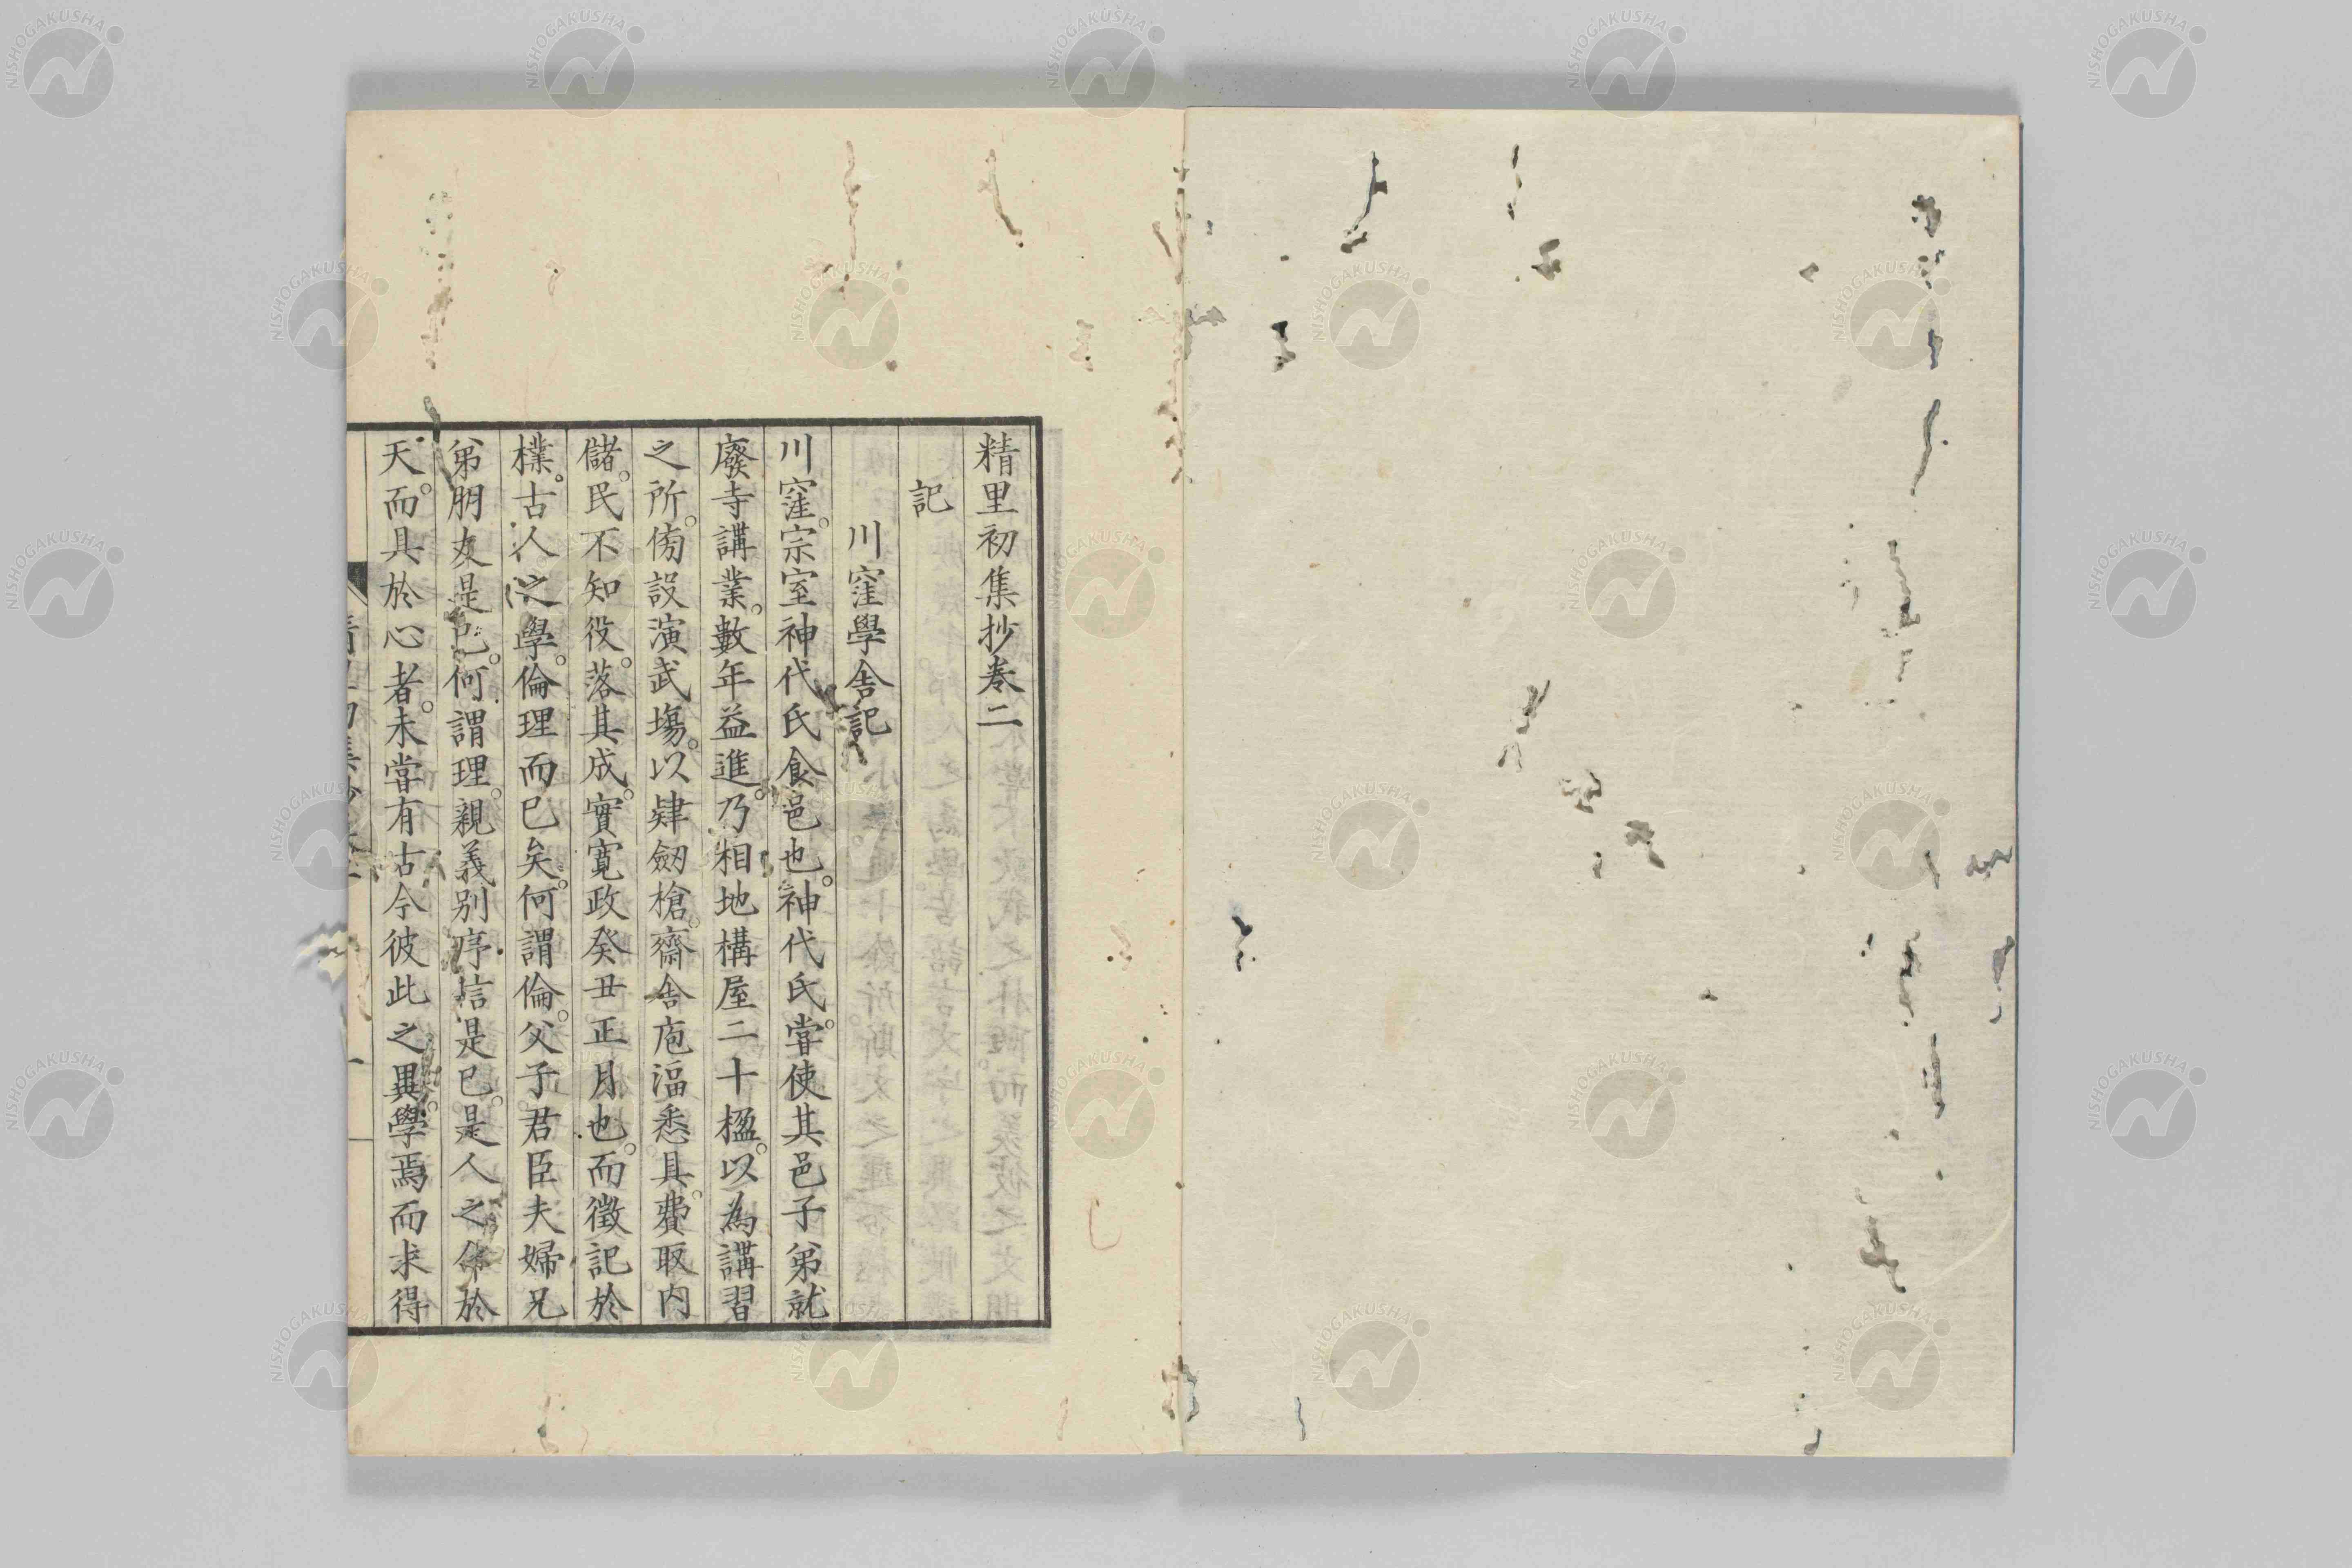 精里初集抄卷二
記
川窪學舍記
川窪。宗室神代氏食邑也。神代氏。嘗使其邑子弟就
廢寺講業。數年益進。乃相地構屋二十楹。以為講習
之所。傍設演武場。以肄劒槍。齋舍庖湢悉具。費取內
儲。民不知役。落其成。實寬政癸丑正月也。而徵記於
樸。古人之學。倫理而已矣。何謂倫。父子君臣夫婦兄
弟朋友是已。何謂理。親義別序信是已。是人之命於
天。而具於心者。未嘗有古今彼此之異。學焉而求得
NISHOGAKUSHA